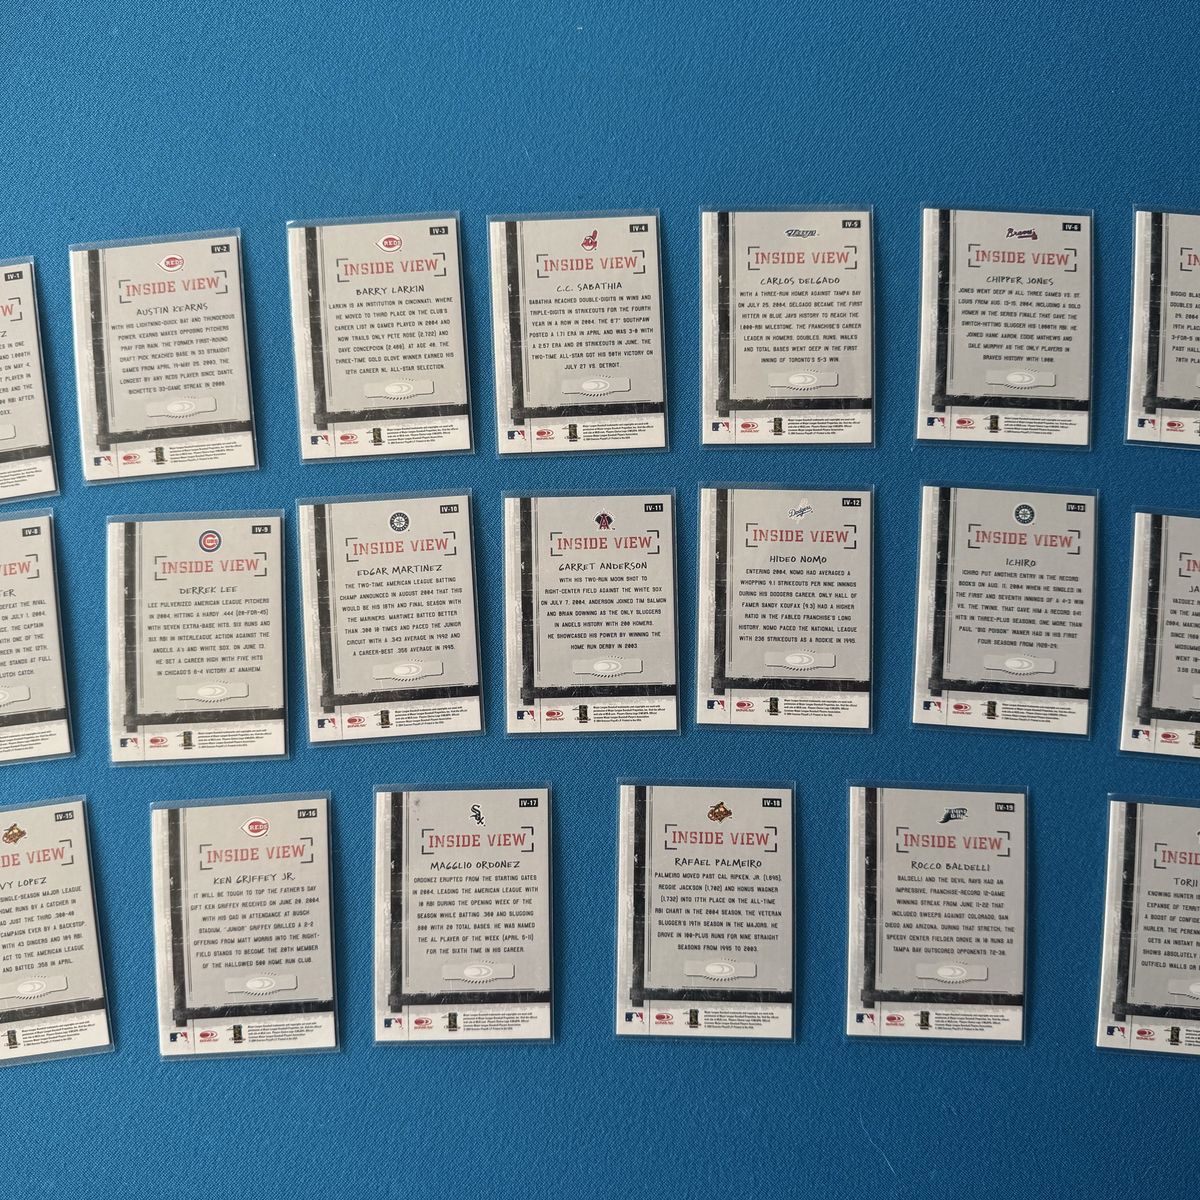 IV-1
W
Z
S IN ONE
AND 1,000TH
S ON MAY 4
T PLAYER IN
ERS AND THE
00 RBI AFTER
OXX.
IV-2
REDS
INSIDE VIEW
AUSTIN KEARNS
WITH HIS LIGHTNING-QUICK BAT AND THUNDEROUS
POWER, KEARNS MAKES OPPOSING PITCHERS
PRAY FOR RAIN. THE FORMER FIRST-ROUND
DRAFT PICK REACHED BASE IN 33 STRAIGHT
GAMES FROM APRIL 14-MAY 25, 2003, THE
LONGEST BY ANY REDS PLAYER SINCE DANTE
BICHETTE'S 33-GAME STREAK IN 2000.
IV-3
REDS
INSIDE VIEW
BARRY LARKIN
LARKIN IS AN INSTITUTION IN CINCINNATI, WHERE
HE MOVED TO THIRD PLACE ON THE CLUB'S
CAREER LIST IN GAMES PLAYED IN 2004 AND
NOW TRAILS ONLY PETE ROSE (2,722) AND
DAVE CONCEPCION (2,488). AT AGE 40, THE
THREE-TIME GOLD GLOVE WINNER EARNED HIS
12TH CAREER NL ALL-STAR SELECTION.
IV-4
INSIDE VIEW
C.C. SABATHIA
SABATHIA REACHED DOUBLE-DIGITS IN WINS AND
TRIPLE-DIGITS IN STRIKEOUTS FOR THE FOURTH
YEAR IN A ROW IN 2004. THE 6'7" SOUTHPAW
POSTED A 1.71 ERA IN APRIL AND WAS 3-0 WITH
A 2.57 ERA AND 28 STRIKEOUTS IN JUNE. THE
TWO-TIME ALL-STAR GOT HIS 50TH VICTORY ON
JULY 27 VS. DETROIT.
IV-5
INSIDE VIEW
CARLOS DELGADO
WITH A THREE-RUN HOMER AGAINST TAMPA BAY
ON JULY 25, 2004, DELGADO BECAME THE FIRST
HITTER IN BLUE JAYS HISTORY TO REACH THE
1,000-RBI MILESTONE. THE FRANCHISE'S CAREER
LEADER IN HOMERS, DOUBLES, RUNS, WALKS
AND TOTAL BASES WENT DEEP IN THE FIRST
INNING OF TORONTO'S 5-3 WIN.
IV-6
Braves
INSIDE VIEW
CHIPPER JONES
JONES WENT DEEP IN ALL THREE GAMES VS. ST.
LOUIS FROM AUG. 13-15, 2004, INCLUDING A SOLO
HOMER IN THE SERIES FINALE THAT GAVE THE
SWITCH-HITTING SLUGGER HIS 1,000TH RBI. HE
JOINED HANK AARON, EDDIE MATHEWS AND
DALE MURPHY AS THE ONLY PLAYERS IN
BRAVES HISTORY WITH 1,000.
IN
BIGGIO
DOUBLES
29, 2004
3-FOR-5 IN
PAST HALL
70TH PLA
IV-8
IEW
TER
DEFEAT THE RIVAL
ON JULY 1, 2004.
CE, THE CAPTAIN
WITH ONE OF THE
REER IN THE 12TH.
HE STANDS AT FULL
LUTCH CATCH.
IV-9
CUBS
INSIDE VIEW
DERREK LEE
LEE PULVERIZED AMERICAN LEAGUE PITCHERS
IN 2004, HITTING A HARDY .444 (20-FOR-45)
WITH SEVEN EXTRA-BASE HITS, SIX RUNS AND
SIX RBI IN INTERLEAGUE ACTION AGAINST THE
ANGELS, A's AND WHITE SOX. ON JUNE 13,
HE SET A CAREER HIGH WITH FIVE HITS
IN CHICAGO'S 6-4 VICTORY AT ANAHEIM.
IV-10
INSIDE VIEW
EDGAR MARTINEZ
THE TWO-TIME AMERICAN LEAGUE BATTING
CHAMP ANNOUNCED IN AUGUST 2004 THAT THIS
WOULD BE HIS 18TH AND FINAL SEASON WITH
THE MARINERS. MARTINEZ BATTED BETTER
THAN .300 10 TIMES AND PACED THE JUNIOR
CIRCUIT WITH A .343 AVERAGE IN 1992 AND
A CAREER-BEST .356 AVERAGE IN 1995.
IV-11
INSIDE VIEW
GARRET ANDERSON
WITH HIS TWO-RUN MOON SHOT TO
RIGHT-CENTER FIELD AGAINST THE WHITE SOX
ON JULY 7, 2004, ANDERSON JOINED TIM SALMON
AND BRIAN DOWNING AS THE ONLY SLUGGERS
IN ANGELS HISTORY WITH 200 HOMERS.
HE SHOWCASED HIS POWER BY WINNING THE
HOME RUN DERBY IN 2003.
IV-12
Dodgers
INSIDE VIEW
HIDEO NOMO
ENTERING 2004, NOMO HAD AVERAGED A
WHOPPING 9.1 STRIKEOUTS PER NINE INNINGS
DURING HIS DODGERS CAREER. ONLY HALL OF
FAMER SANDY KOUFAX (9.3) HAD A HIGHER
RATIO IN THE FABLED FRANCHISE'S LONG
HISTORY. NOMO PACED THE NATIONAL LEAGUE
WITH 236 STRIKEOUTS AS A ROOKIE IN 1995.
IV-13
INSIDE VIEW
ICHIRO
ICHIRO PUT ANOTHER ENTRY IN THE RECORD
BOOKS ON AUG. 11, 2004 WHEN HE SINGLED IN
THE FIRST AND SEVENTH INNINGS OF A 4-3 WIN
VS. THE TWINS. THAT GAVE HIM A RECORD 841
HITS IN THREE-PLUS SEASONS, ONE MORE THAN
PAUL "BIG POISON" WANER HAD IN HIS FIRST
FOUR SEASONS FROM 1926-29.
IN
JA
VAZQUEZ
ON THE
AMERICA
2004, MAKING
SINCE
MIDSUMM
WENT 10-
3.56 ERA
IV-15
DE VIEW
VY LOPEZ
SINGLE-SEASON MAJOR LEAGUE
HOME RUNS BY A CATCHER IN
AD JUST THE THIRD .300-40
CAMPAIGN EVER BY A BACKSTOP.
WITH 43 DINGERS AND 109 RBI.
ACT TO THE AMERICAN LEAGUE
AND BATTED .358 IN APRIL.
IV-16
REDS
INSIDE VIEW
KEN GRIFFEY JR.
IT WILL BE TOUGH TO TOP THE FATHER'S DAY
GIFT KEN GRIFFEY RECEIVED ON JUNE 20, 2004.
WITH HIS DAD IN ATTENDANCE AT BUSCH
STADIUM, "JUNIOR" GRIFFEY DRILLED A 2-2
OFFERING FROM MATT MORRIS INTO THE RIGHT-
FIELD STANDS TO BECOME THE 20TH MEMBER
OF THE HALLOWED 500 HOME RUN CLUB.
IV-17
Sox
INSIDE VIEW
MAGGLIO ORDONEZ
ORDONEZ ERUPTED FROM THE STARTING GATES
IN 2004, LEADING THE AMERICAN LEAGUE WITH
10 RBI DURING THE OPENING WEEK OF THE
SEASON WHILE BATTING .360 AND SLUGGING
.800 WITH 20 TOTAL BASES. HE WAS NAMED
THE AL PLAYER OF THE WEEK (APRIL 5-11)
FOR THE SIXTH TIME IN HIS CAREER.
IV-18
INSIDE VIEW
RAFAEL PALMEIRO
PALMEIRO MOVED PAST CAL RIPKEN, JR. (1,695),
REGGIE JACKSON (1,702) AND HONUS WAGNER
(1,732) INTO 17TH PLACE ON THE ALL-TIME
RBI CHART IN THE 2004 SEASON, THE VETERAN
SLUGGER'S 19TH SEASON IN THE MAJORS. HE
DROVE IN 100-PLUS RUNS FOR NINE STRAIGHT
SEASONS FROM 1995 TO 2003.
IV-19
INSIDE VIEW
ROCCO BALDELLI
BALDELLI AND THE DEVIL RAYS HAD AN
IMPRESSIVE, FRANCHISE-RECORD 12-GAME
WINNING STREAK FROM JUNE 11-22 THAT
INCLUDED SWEEPS AGAINST COLORADO, SAN
DIEGO AND ARIZONA. DURING THAT STRETCH, THE
SPEEDY CENTER FIELDER DROVE IN 10 RUNS AS
TAMPA BAY OUTSCORED OPPONENTS 72-38.
INSID
TORII
KNOWING HUNTER IS
EXPANSE OF TERRIT
A BOOST OF CONFID
HURLER. THE PERENN
GETS AN INSTANT
SHOWS ABSOLUTELY
OUTFIELD WALLS OR